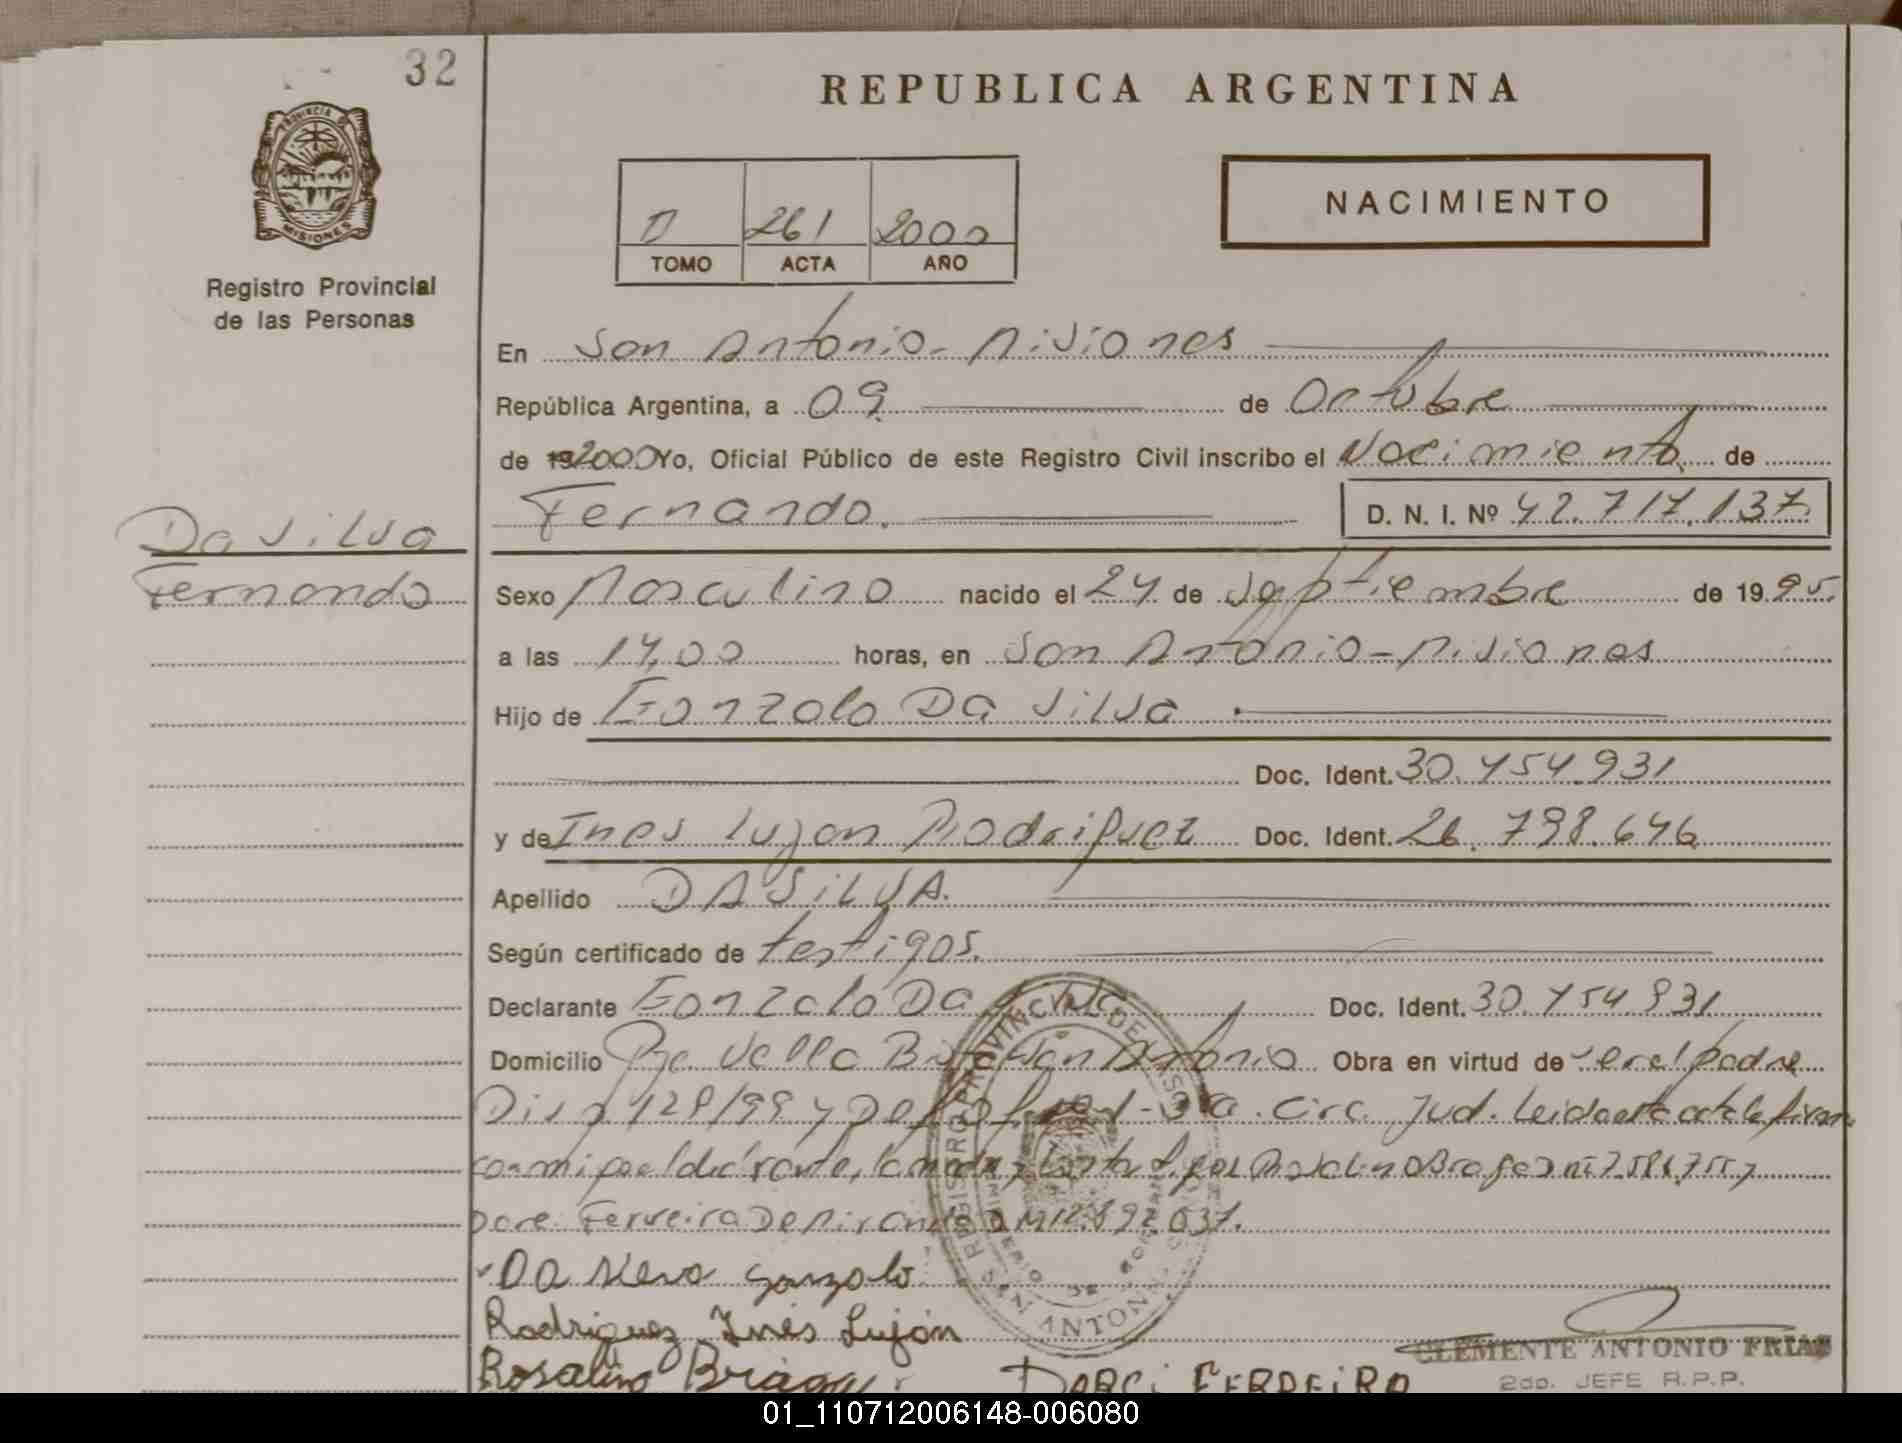 32
REPUBLICA ARGENTINA
PROVINCIA DE
MISIONES
Registro Provincial
de las Personas
NACIMIENTO
261 2000
TOMO ACTA AÑO
En San Antonio - Misiones
República Argentina, a 09 de Octubre
de 2000 Yo, Oficial Público de este Registro Civil inscribo el Nacimiento de
Fernando. D. N. I. Nº 42.717.137
Da Silva
Fernando
Sexo Masculino nacido el 24 de Septiembre de 1995.
a las 14,00 horas, en San Antonio - Misiones
Hijo de Gonzalo Da Silva
Doc. Ident. 30.454.931
y de Ines Lujan Rodriguez Doc. Ident. 26.798.646
Apellido DA SILVA.
Según certificado de testigos.
Declarante Gonzalo Da Silva Doc. Ident. 30.454.931
Domicilio San Antonio Obra en virtud de ser el padre
Disp. 128/99 y 3ra. Circ. Jud. Leida esta acta la firman
conmigo el declarante, la madre y
Ferreira De Miranda
Da Silva Gonzalo
Rodriguez Inés Luján
Rosalino Braga
DARCI FERREIRA
REGISTRO PROVINCIAL DE LAS PERSONAS
MINISTERIO DE GOBIERNO
SAN ANTONIO
CLEMENTE ANTONIO FRIAS
2do. JEFE R.P.P.
01_110712006148-006080